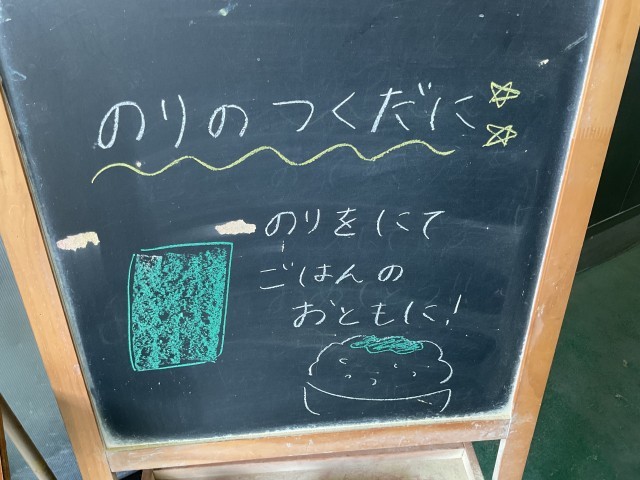 のりのつくだに
のりをにて
ごはんの
おともに!